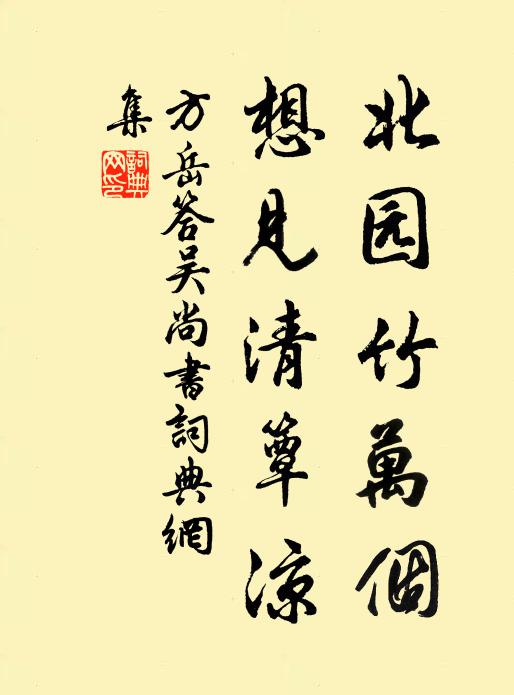 北园竹萬個
想見清簟涼
方岳答吴尚書詞典網
集
詞典網印